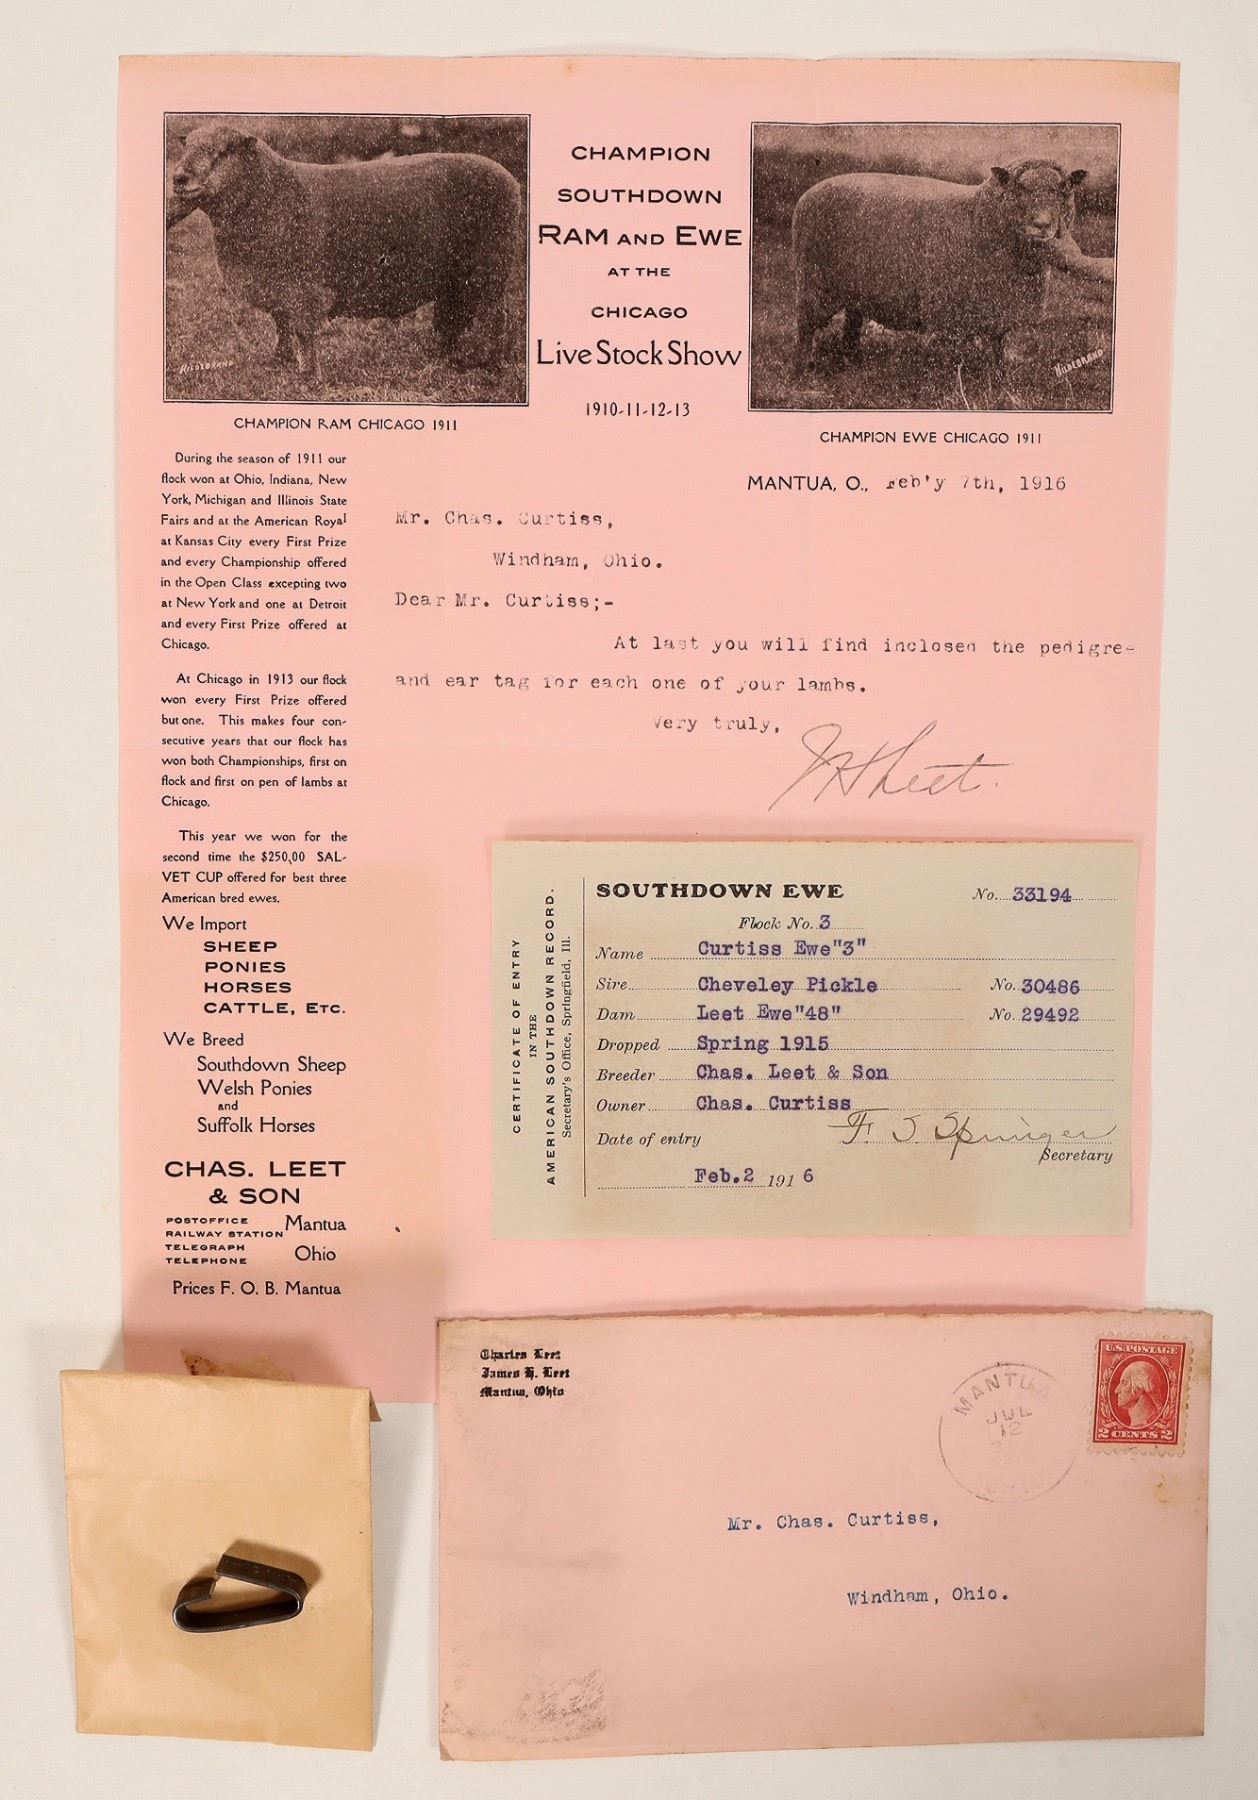 CHAMPION
SOUTHDOWN
RAM AND EWE
AT THE
CHICAGO
Live Stock Show
1910-11-12-13
HILDEBRAND
HILDEBRAND
CHAMPION RAM CHICAGO 1911
CHAMPION EWE CHICAGO 1911
During the season of 1911 our
flock won at Ohio, Indiana, New
York, Michigan and Illinois State
Fairs and at the American Royal
at Kansas City every First Prize
and every Championship offered
in the Open Class excepting two
at New York and one at Detroit
and every First Prize offered at
Chicago.
At Chicago in 1913 our flock
won every First Prize offered
but one. This makes four con-
secutive years that our flock has
won both Championships, first on
flock and first on pen of lambs at
Chicago.
This year we won for the
second time the $250,00 SAL-
VET CUP offered for best three
American bred ewes.
We Import
SHEEP
PONIES
HORSES
CATTLE, ETC.
We Breed
Southdown Sheep
Welsh Ponies
and
Suffolk Horses
CHAS. LEET
& SON
POSTOFFICE
RAILWAY STATION
TELEGRAPH
TELEPHONE
Mantua
Ohio
Prices F. O. B. Mantua
MANTUA, O., Feb'y 7th, 1916
Mr. Chas. Curtiss,
Windham, Ohio.
Dear Mr. Curtiss;-
At last you will find inclosed the pedigree
and ear tag for each one of your lambs.
Very truly,
J H Leet.
CERTIFICATE OF ENTRY
IN THE
AMERICAN SOUTHDOWN RECORD.
Secretary's Office, Springfield, Ill.
SOUTHDOWN EWE No. 33194
Flock No. 3
Name Curtiss Ewe"3"
Sire Cheveley Pickle No. 30486
Dam Leet Ewe"48" No. 29492
Dropped Spring 1915
Breeder Chas. Leet & Son
Owner Chas. Curtiss
Date of entry F. S Springer
Secretary
Feb.2 1916
Charles Leet
James H. Leet
Mantua, Ohio
MANTUA
JUL
12
OHIO
U.S. POSTAGE
2 CENTS 2
Mr. Chas. Curtiss,
Windham, Ohio.